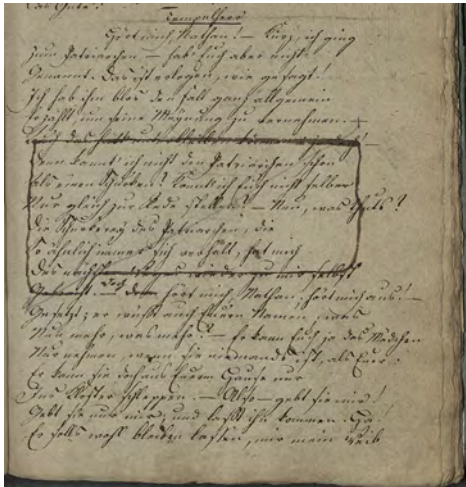 Tempelherr
Hört mich, Nathan! — Kurz, ich ging
Zum Patriarchen — hab' Euch aber nicht
Genannt. Das ist erlogen, wie gesagt!
Ich hab ihm blos den Fall ganz allgemein
Erzählt um seine Meynung zu vernehmen. —
Auch das hätt' unterbleiben können
Denn kannt' ich nicht den Patriarchen schon
Als einen Schurken? Konnt ich Euch nicht selber
Nur gleich zur Rede stellen? — Nun, was thuts?
Die Schurkerey des Patriarchen, die
So ähnlich immer sich verhält, hat mich
Des nächsten Weges wieder zu mir selbst
Gebracht. — Doch hört mich, Nathan, hört mich aus! —
Gesetzt; er wüßt auch Euern Namen, was
Nun mehr, was mehr? — Er kann Euch ja das Mädchen
Nur nehmen, wenn sie niemands ist, als Euer.
Er kann sie doch aus Euerm Hause nur
Ins Kloster schleppen. — Also — gebt sie mir!
Gebt sie nur mir, und laßt ihn kommen. Ha!
Er solls wohl bleiben lassen, mir mein Weib